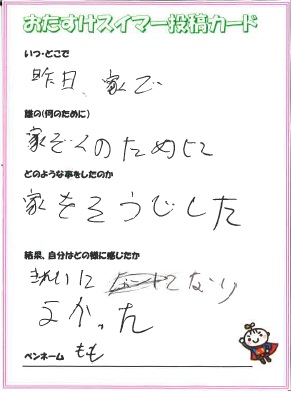 おたすけスイマー投稿カード
いつ・どこで
昨日、家で
誰の(何のために)
家ぞくのために
どのような事をしたのか
家をそうじした
結果、自分はどの様に感じたか
きれいになり
よかった
ペンネーム もも